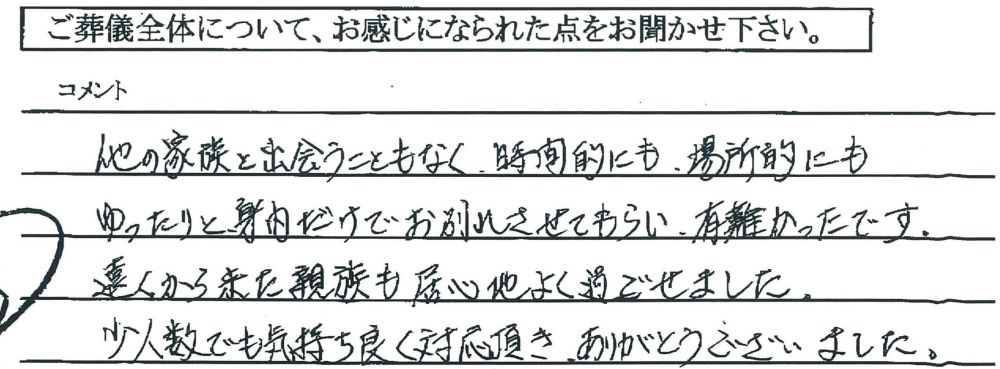 ご葬儀全体について、お感じになられた点をお聞かせ下さい。
コメント
他の家族と出会うこともなく、時間的にも、場所的にも
ゆったりと身内だけでお別れさせてもらい、有難かったです。
遠くから来た親族も居心地よく過ごせました。
少人数でも気持ち良く対応頂き、ありがとうございました。